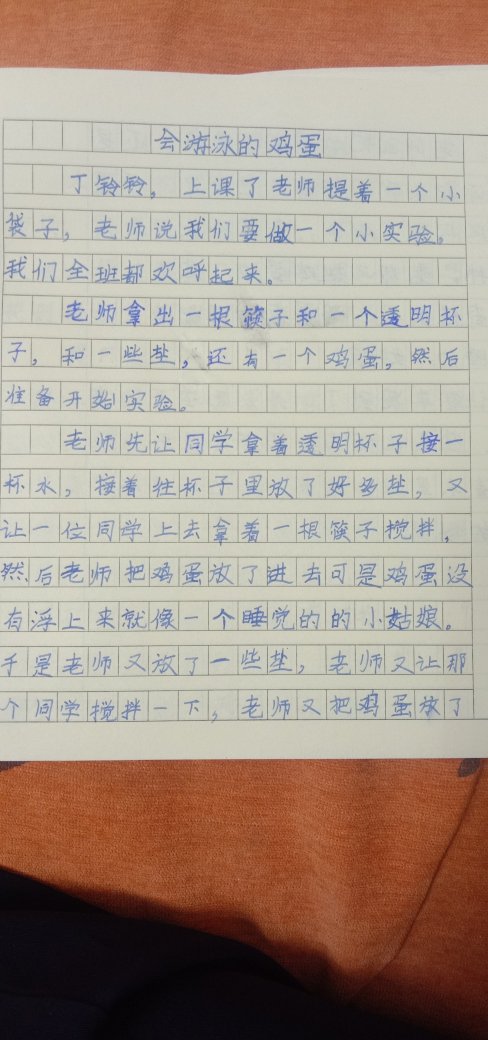 会游泳的鸡蛋
丁铃铃，上课了老师提着一个小
袋子，老师说我们要做一个小实验。
我们全班都欢呼起来。
老师拿出一根筷子和一个透明杯
子，和一些盐，还有一个鸡蛋，然后
准备开始实验。
老师先让同学拿着透明杯子接一
杯水，接着往杯子里放了好多盐，又
让一位同学上去拿着一根筷子搅拌，
然后老师把鸡蛋放了进去可是鸡蛋没
有浮上来就像一个睡觉的的小姑娘。
于是老师又放了一些盐，老师又让那
个同学搅拌一下，老师又把鸡蛋放了